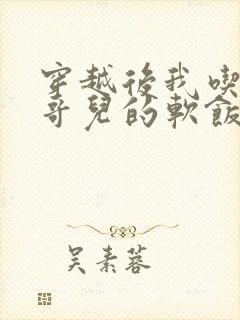 穿越後我喫
哥兒的軟飯
吴素蓉